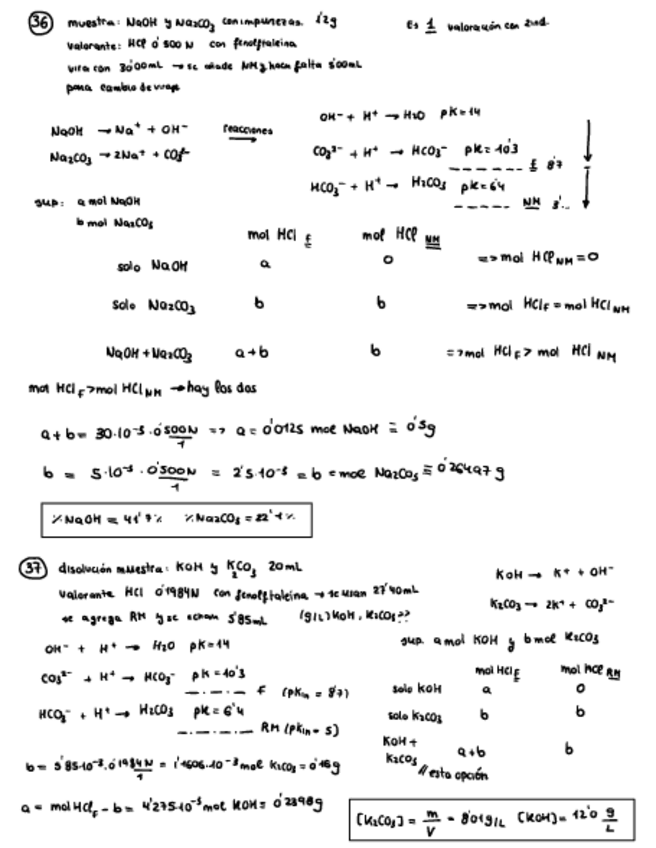 36 muestra: NaOH y Na2CO3 con impurezas. 1'2g Es 1 valoración con 2 ind.
valorante: HCl 0'500 N con fenolftaleina
vira con 30'00mL → se añade NM y hacen falta 5'00mL
para cambio de viraje
NaOH → Na⁺ + OH⁻ reacciones OH⁻ + H⁺ → H2O pK=14
Na2CO3 → 2Na⁺ + CO3²⁻ CO3²⁻ + H⁺ → HCO3⁻ pK=10'3
F 8'7
HCO3⁻ + H⁺ → H2CO3 pK=6'4
NM 3'...
sup: a mol NaOH
b mol Na2CO3
mol HCl F mol HCl NM
solo NaOH a 0 => mol HCl NM = 0
solo Na2CO3 b b => mol HCl F = mol HCl NM
NaOH + Na2CO3 a+b b => mol HCl F > mol HCl NM
mol HCl F > mol HCl NM → hay los dos
a + b = 30·10⁻³ · 0'500N/1 => a = 0'0125 mol NaOH ≡ 0'5g
b = 5·10⁻³ · 0'500N/1 = 2'5·10⁻³ = b = mol Na2CO3 ≡ 0'26497 g
% NaOH = 41'7% % Na2CO3 = 22'1%
37 disolución muestra: KOH y K2CO3 20mL
KOH → K⁺ + OH⁻
valorante HCl 0'1984N con fenolftaleina → se usan 27'40mL
K2CO3 → 2K⁺ + CO3²⁻
se agrega RM y se echan 5'85mL (g/L) KOH, K2CO3??
OH⁻ + H⁺ → H2O pK=14 sup. a mol KOH y b mol K2CO3
CO3²⁻ + H⁺ → HCO3⁻ pK=10'3 mol HCl F mol HCl RM
F (pKin = 8'7) solo KOH a 0
HCO3⁻ + H⁺ → H2CO3 pK=6'4 solo K2CO3 b b
RM (pKin = 5) KOH + K2CO3 a+b b
b = 5'85·10⁻³ · 0'1984N/1 = 1'1606·10⁻³ mol K2CO3 = 0'16g // esta opción
a = mol HCl F − b = 4'275·10⁻³ mol KOH = 0'2398g
[K2CO3] = m/V = 8'01g/L [KOH] = 12'0 g/L